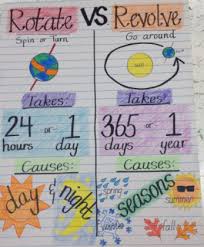 Rotate VS. Revolve
Spin or Turn
Go around
Takes:
24 or 1
hours day
Takes:
365 or 1
days year
Causes:
day & night
Causes:
spring
summer
seasons
winter
fall